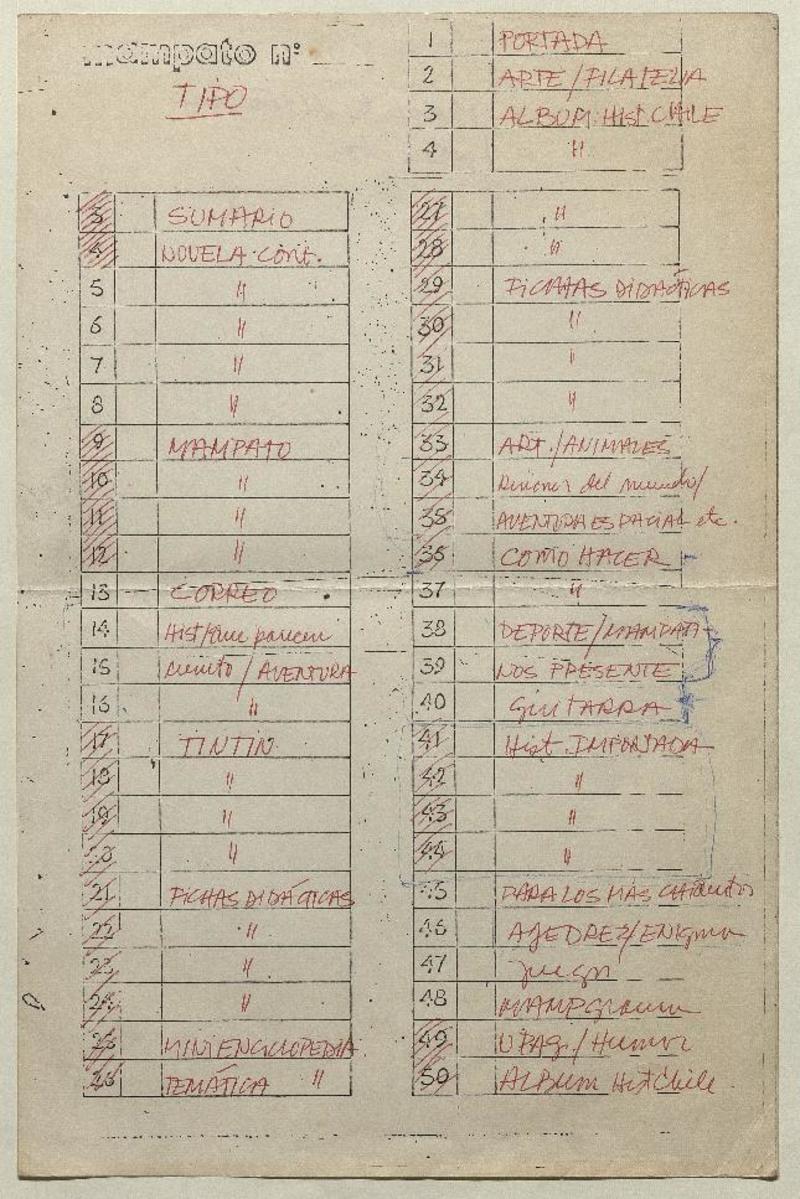 mampato nº
TIPO
1 PORTADA
2 ARTE/FILATELIA
3 ALBUM HIST. CHILE
4 "
3 SUMARIO
4 NOVELA CONT.
5 "
6 "
7 "
8 "
9 MAMPATO
10 "
11 "
12 "
13 CORREO
14 Hist/que parecen
15 cuento / AVENTURA
16 "
17 TINTIN
18 "
19 "
20 "
21 FICHAS DIDÁCTICAS
22 "
23 "
24 "
25 MINI ENCICLOPEDIA
26 TEMÁTICA "
27 "
28 "
29 FICHAS DIDÁCTICAS
30 "
31 "
32 "
33 ART./ANIMALES
34 del mundo/
35 AVENTURA ESPACIAL etc.
36 COMO HACER
37 "
38 DEPORTE/MAMPATO
39 NOS PRESENTE
40 GUITARRA
41 Hist. IMPORTADA
42 "
43 "
44 "
45 PARA LOS MAS CHIQUITOS
46 AJEDREZ/ENIGMA
47 juegos
48 MAMPGRAMA
49 U PAG./Humor
50 ALBUM Hist Chile